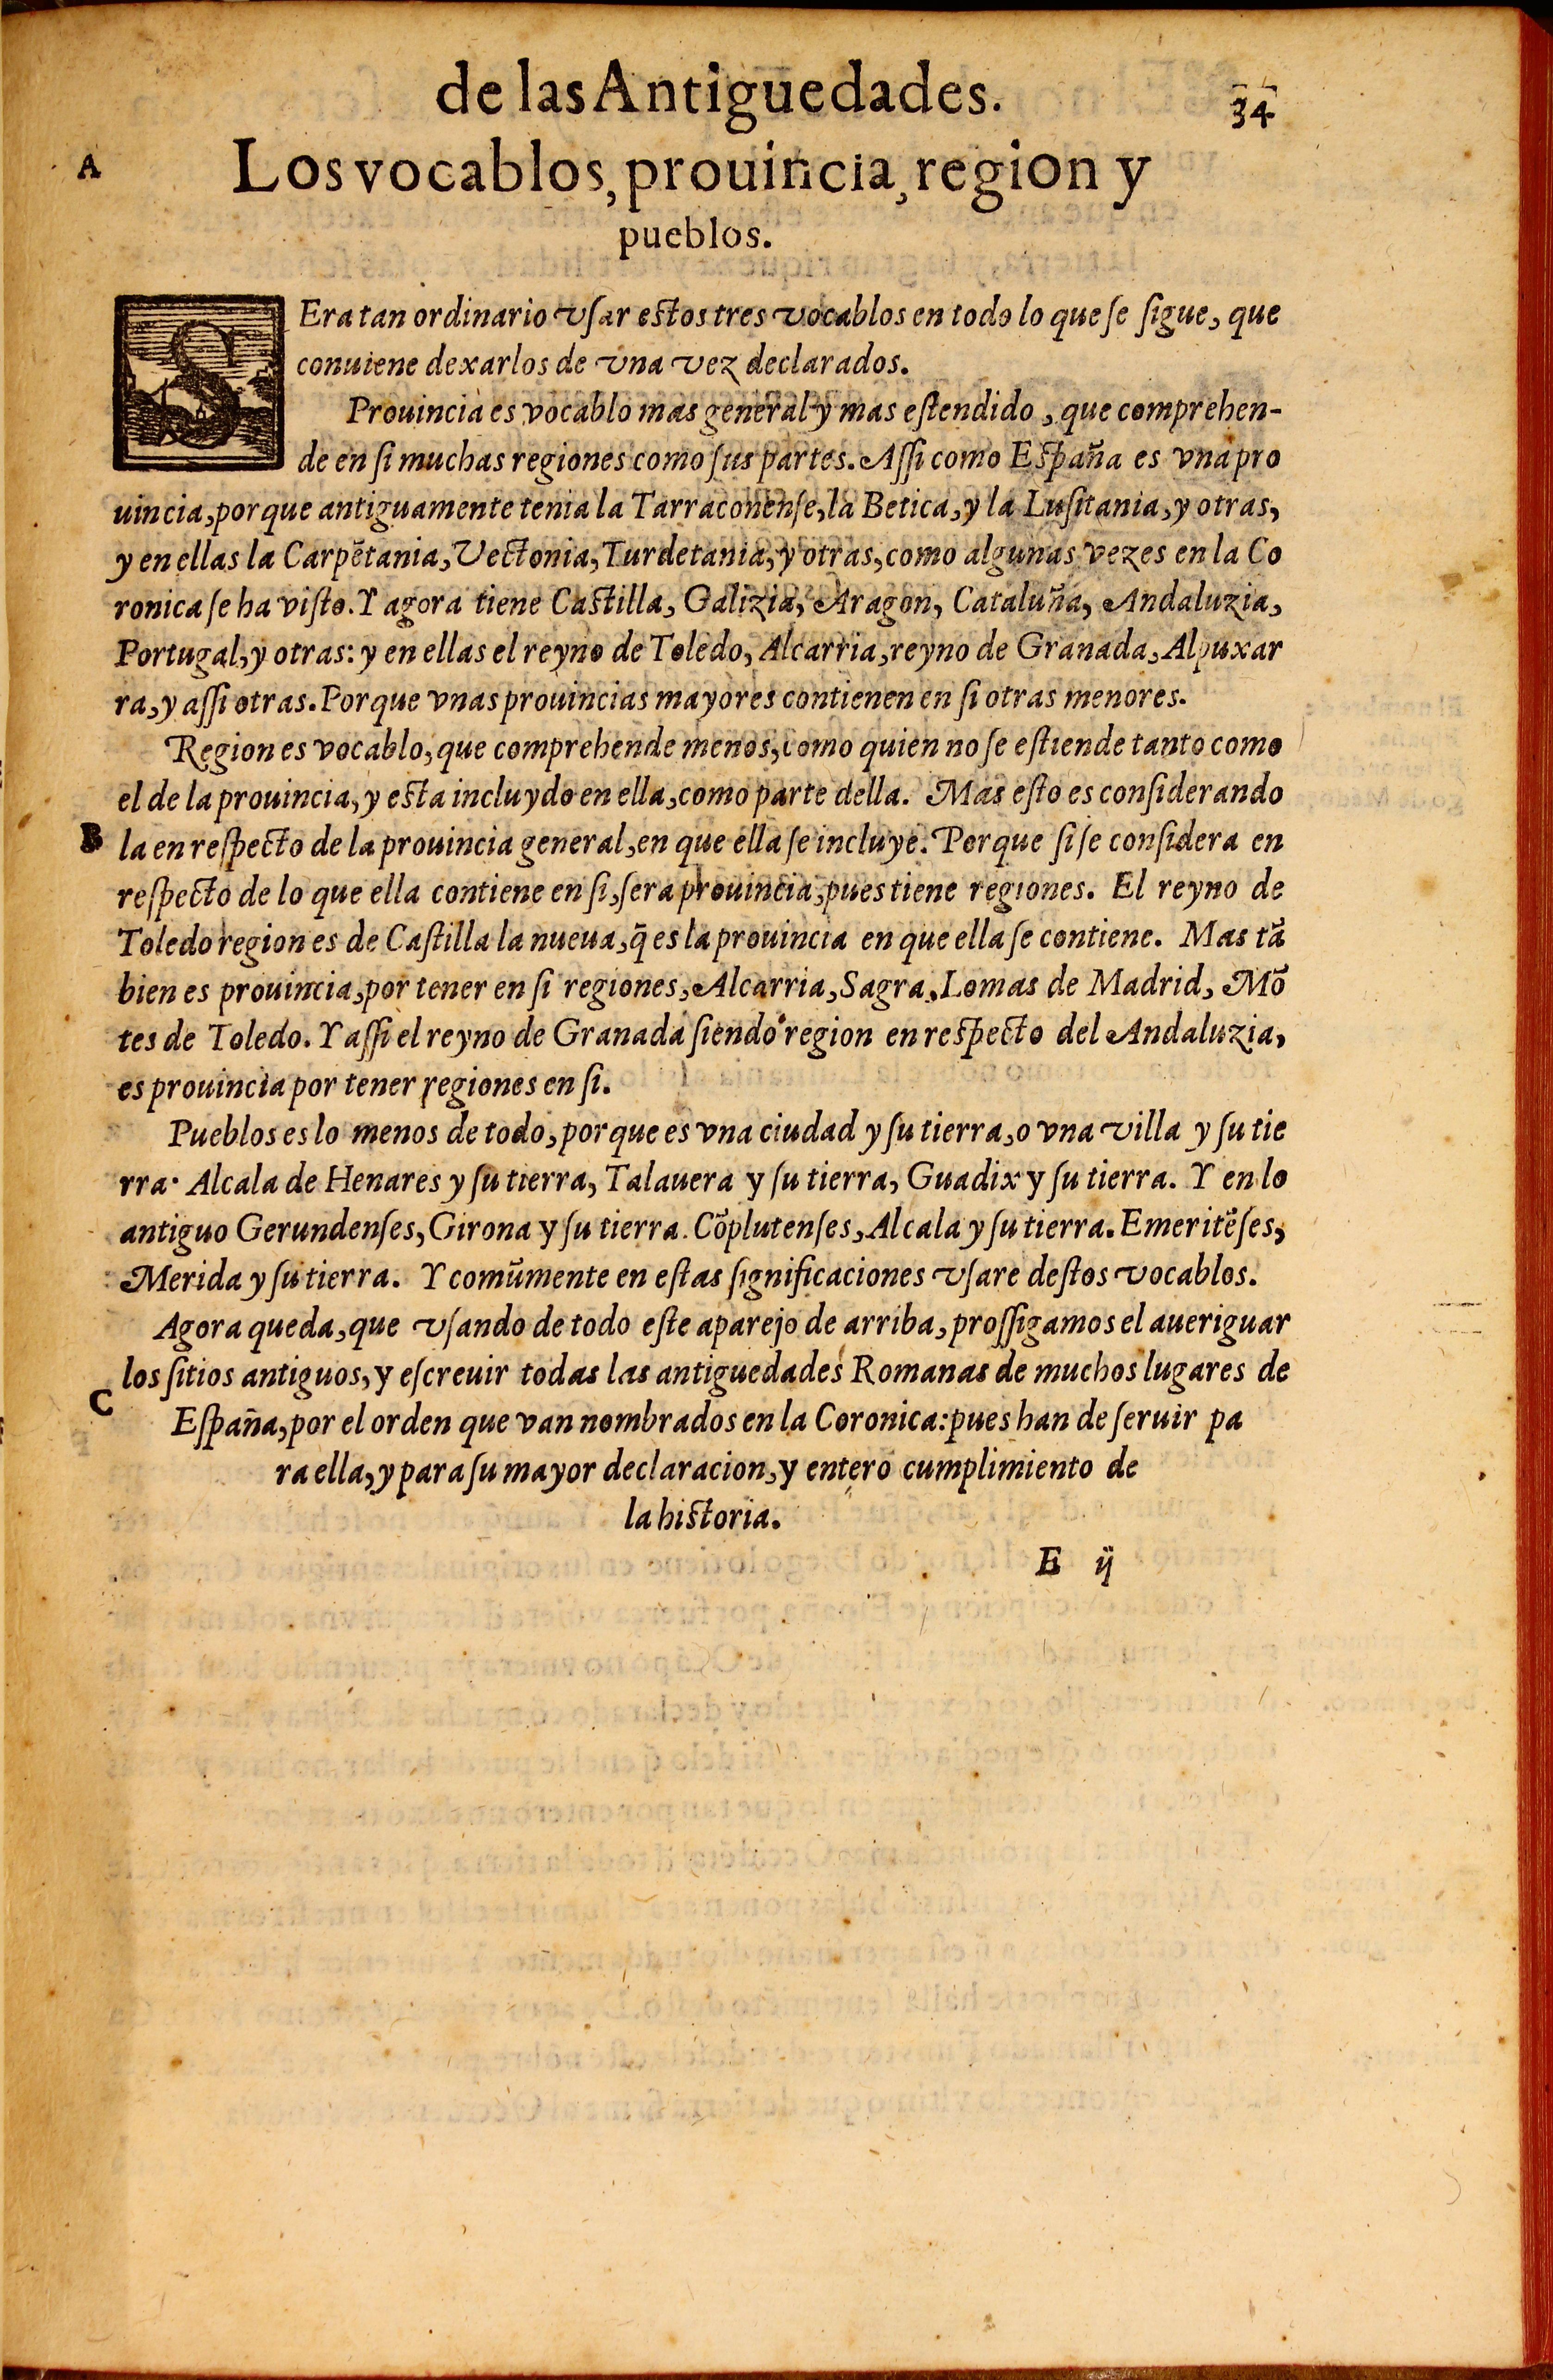 de las Antiguedades.
34
A
Los vocablos, prouincia, region y
pueblos.
SEra tan ordinario vſar eſtos tres vocablos en todo lo que ſe ſigue, que
conuiene dexarlos de vna vez declarados.
Prouincia es vocablo mas general y mas eſtendido, que comprehen-
de en ſi muchas regiones como ſus partes. Aſſi como Eſpaña es vna pro
uincia, porque antiguamente tenia la Tarraconenſe, la Betica, y la Luſitania, y otras,
y en ellas la Carpētania, Vectonia, Turdetania, y otras, como algunas vezes en la Co
ronica ſe ha viſto. Y agora tiene Caſtilla, Galizia, Aragon, Cataluña, Andaluzia,
Portugal, y otras: y en ellas el reyno de Toledo, Alcarria, reyno de Granada, Alpuxar
ra, y aſſi otras. Porque vnas prouincias mayores contienen en ſi otras menores.
Region es vocablo, que comprehende menos, como quien no ſe eſtiende tanto como
el de la prouincia, y eſta incluydo en ella, como parte della. Mas eſto es conſiderando
B
la en reſpecto de la prouincia general, en que ella ſe incluye. Porque ſi ſe conſidera en
reſpecto de lo que ella contiene en ſi, ſera prouincia, pues tiene regiones. El reyno de
Toledo region es de Caſtilla la nueua, q̃ es la prouincia en que ella ſe contiene. Mas tā
bien es prouincia, por tener en ſi regiones, Alcarria, Sagra, Lomas de Madrid, Mō
tes de Toledo. Y aſſi el reyno de Granada ſiendo region en reſpecto del Andaluzia,
es prouincia por tener regiones en ſi.
Pueblos es lo menos de todo, porque es vna ciudad y ſu tierra, o vna villa y ſu tie
rra. Alcala de Henares y ſu tierra, Talauera y ſu tierra, Guadix y ſu tierra. Y en lo
antiguo Gerundenſes, Girona y ſu tierra. Cōplutenſes, Alcala y ſu tierra. Emeritēſes,
Merida y ſu tierra. Y comūmente en eſtas ſignificaciones vſare deſtos vocablos.
Agora queda, que vſando de todo eſte aparejo de arriba, proſſigamos el aueriguar
los ſitios antiguos, y eſcreuir todas las antiguedades Romanas de muchos lugares de
C
Eſpaña, por el orden que van nombrados en la Coronica: pues han de ſeruir pa
ra ella, y para ſu mayor declaracion, y entero cumplimiento de
la hiſtoria.
E ij